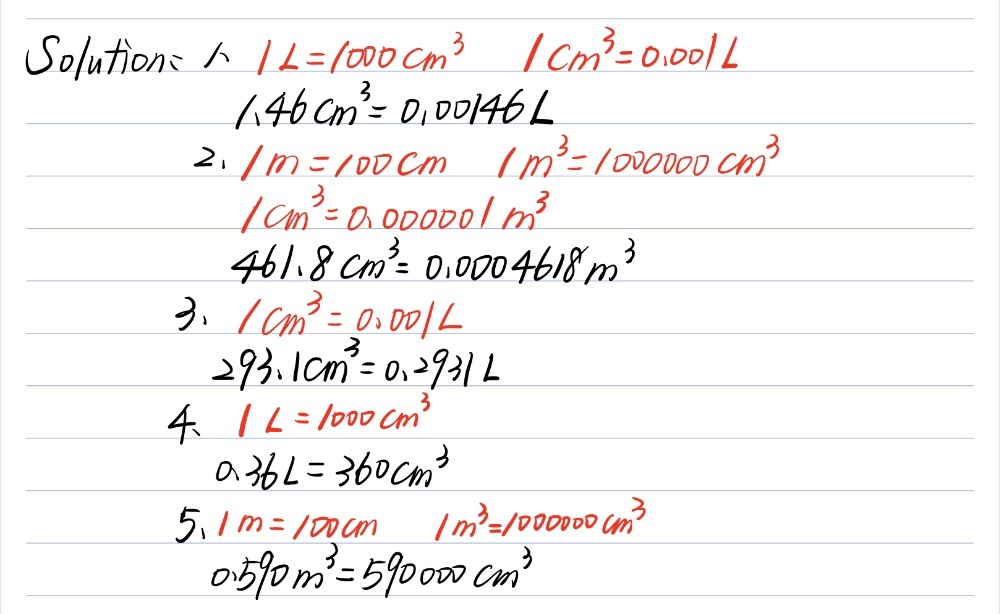 Solution: 1. 1L=1000cm³ 1cm³=0.001L
1.46cm³=0.00146L
2. 1m=100cm 1m³=1000000cm³
1cm³=0.000001m³
461.8cm³=0.0004618m³
3. 1cm³=0.001L
293.1cm³=0.2931L
4. 1L=1000cm³
0.36L=360cm³
5. 1m=100cm 1m³=1000000cm³
0.590m³=590000cm³